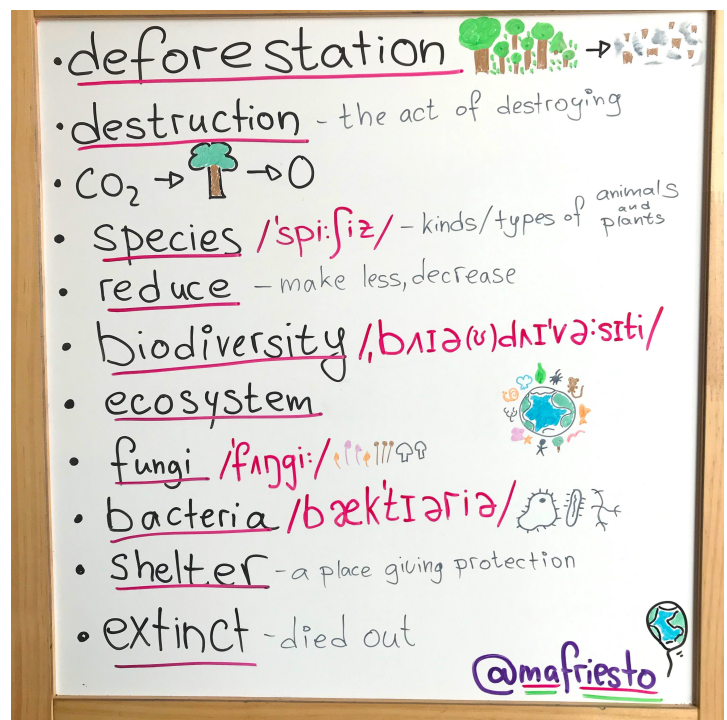 • deforestation →
• destruction - the act of destroying
• CO₂ → → O
• species /ˈspiːʃiz/ - kinds/types of animals and plants
• reduce - make less, decrease
• biodiversity /ˌbʌɪə(ʊ)dʌɪˈvəːsɪti/
• ecosystem
• fungi /ˈfʌŋgiː/
• bacteria /bækˈtɪəriə/
• shelter - a place giving protection
• extinct - died out
@mafriesto